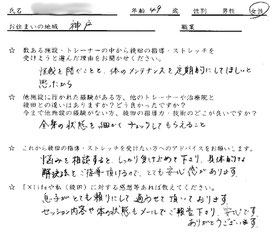 氏名 年齢 49 歳 性別 男性 女性
お住まいの地域 神戸 職業
☆ 数ある施設・トレーナーの中から後田の指導・ストレッチを
受けようと選んだ理由をお聞かせください。
体のメンテナンスを定期的にしてほしいと
思ったから
☆ 他施設に行かれた経験がある方、他のトレーナーや治療院と
後田との違いはありますか？どう良かったですか？
今まで他施設経験がない方、後田の指導力・技術のどこが良いですか？
全身の状態を細かくチェックしてもらえること
☆ これから後田の指導・ストレッチを受けたい方へのアドバイスをお願いします。
悩みを相談すると、しっかり受け止めて下さり、具体的な
解決法をご指導頂けるので、とても安心感があります
☆ や私（後田）に対する感想等あれば教えてください。
息子がとても頼りにして通わせて頂いております。
セッション内容や体の状態もメールでご報告下さり、安心です。
ありがとうございます。